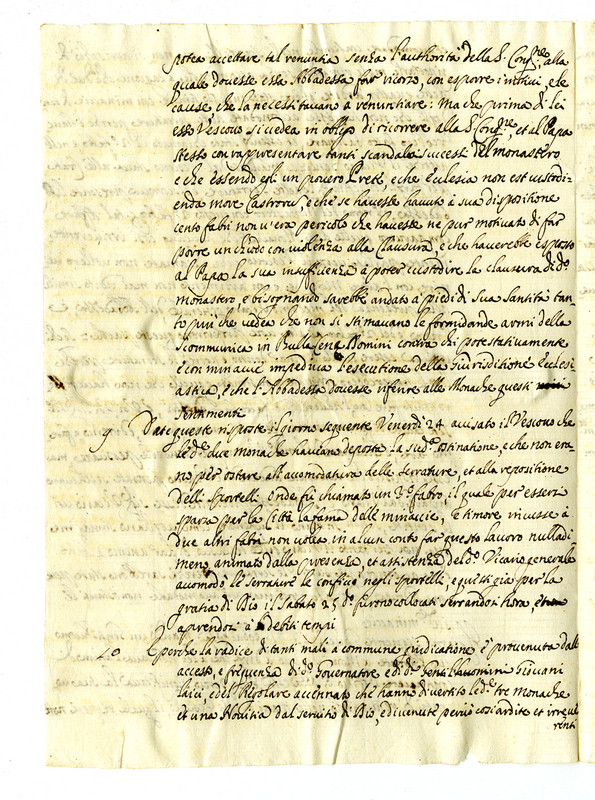 potea accettare tal renuntia senza l'authorità della S. Cong.ne, alla
quale douesse essa Abbadessa far ricorso, con esporre i motiui, e le
cause che la necessitauano à renuntiare: Ma che prima di lei
esso Vescouo si uedea in obligo di ricorrere alla S. Cong.ne, et al Papa
stesso con rappresentare tanti scandali successi del monastero
e che essendo egli un pouero Prete, e che Ecclesia non est custodi-
enda more Castrorum, e che se hauesse hauuto à sua dispositione
cento fabri non u'era pericolo che hauesse ne pur motiuato di far
porre un chiodo con uiolenza alla Clausura, e che hauerebbe esposto
al Papa la sua insufficienza à poter custodire la clausura di d.o
monastero, e bisognando sarebbe andato à piedi di sua Santità tan-
to più che uedea che non si stimauano le formidande armi della
scommunica in Bulla Cena Domini contra chi potestatiuamente
e con minaccie impediua l'esecutione della Giurisditione Eccles-
astica, e che l'Abbadessa douesse riferire alle Monache questi
sentimenti
9 Date queste risposte il giorno seguente Venerdì 24 auisato il Vescouo che
le d.e due monache haueano deposte la sud.a ostinatione, e che non era-
no per ostare all'accomodatura delle serrature, et alla repositione
delli sportelli. Onde fù chiamato un 3.o fabro, il quale per essersi
sparsa per la Città la fama delle minaccie, e timore incusse à
due altri fabri non uolea in alcun conto far questo lauoro nulladi-
meno animato dalla presenza, et assistenza del d.o Vicario generale
accomodò le serrature le conficcò negli sportelli, e questi già per la
gratia di Dio il Sabato 25 d.o furono collocati serrandosi hora, et
aprendosi à debiti tempi
10 E perche la radice di tanti mali à commune giudicatione è prouenuta dall'
accesso, e frequenza di d.o Gouernatore e di d.i Gentilhuomini Giouani
laici, e del Regolare accennato che hanno diuertito le d.e tre monache
et una Nouitia dal seruitio di Dio, e diuenute perciò così ardite et irreue
renti